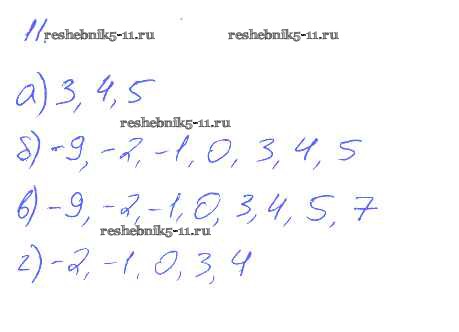 11.
reshebnik5-11.ru reshebnik5-11.ru
а) 3, 4, 5
reshebnik5-11.ru
б) -9, -2, -1, 0, 3, 4, 5
в) -9, -2, -1, 0, 3, 4, 5, 7
reshebnik5-11.ru
г) -2, -1, 0, 3, 4